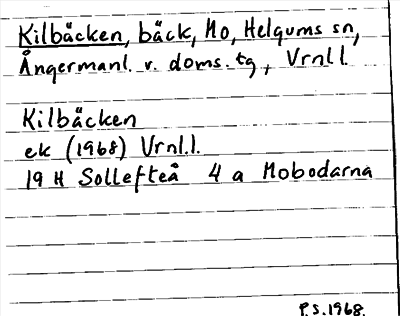 Kilbäcken, bäck, Mo, Helgums sn,
Ångermanl. v. doms. tg, Vrnl l.
Kilbäcken
ek (1968) Vrnl.l.
19 H Sollefteå 4 a Mobodarna
P.S. 1968.